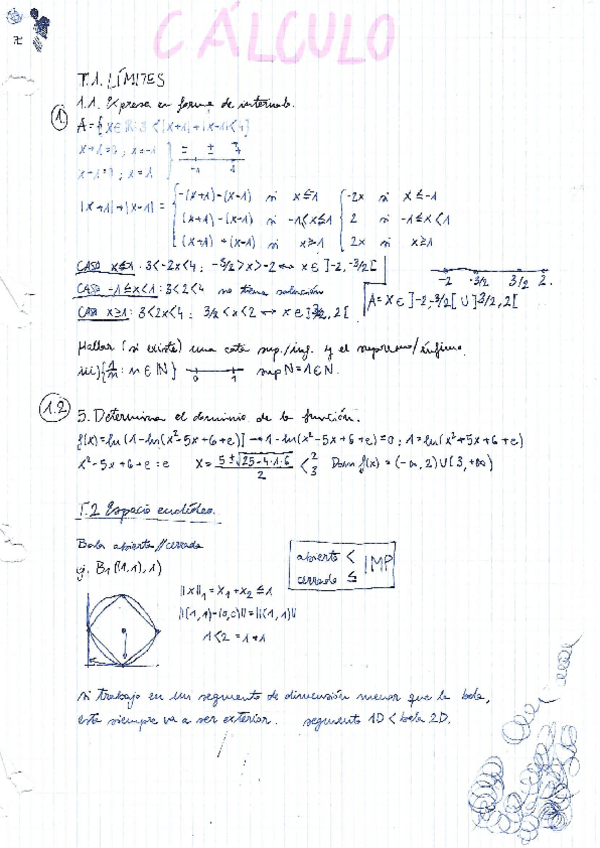 CÁLCULO
T.1. LÍMITES
1.1. Expresa en forma de intervalo.
① A={x∈ℝ: 3<|x+1|+|x-1|<4}
x+1=0; x=-1
x-1=0; x=1
-1 1
|x+1|+|x-1| = { -(x+1)-(x-1) si x≤-1 { -2x si x≤-1
(x+1)-(x-1) si -1<x≤1 2 si -1≤x<1
(x+1)+(x-1) si x≥1 2x si x≥1
CASO x≤-1: 3<-2x<4; -3/2>x>-2 ↔ x∈]-2,-3/2[
-2 -3/2 3/2 2.
CASO -1≤x<1: 3<2<4 no tiene solución
A=x∈]-2,-3/2[ ∪ ]3/2,2[
CASO x≥1: 3<2x<4; 3/2<x<2 ↔ x∈]3/2,2[
Hallar (si existe) una cota sup./inf. y el supremo/ínfimo.
iii){1/n : n∈ℕ} 0 1 sup N=1∈N.
1.2
5. Determina el dominio de la función.
f(x)=ln(1-ln(x²-5x+6+e)] → 1-ln(x²-5x+6+e)=0; 1=ln(x²+5x+6+e)
x²-5x+6+e=e x=5±√25-4·1·6/2 < 2 3 Dom f(x)=(-∞,2)∪(3,+∞)
T.2 Espacio euclídeo.
Bola abierta//cerrada
ej. B₁((1,1),1)
abierto <
cerrado ≤
IMP
||x||₁=x₁+x₂≤1
||(1,1)-(0,0)||=||(1,1)||
1<2=1+1
si trabajo en un segmento de dimensión menor que la bola,
este siempre va a ser exterior. segmento 1D < bola 2D.